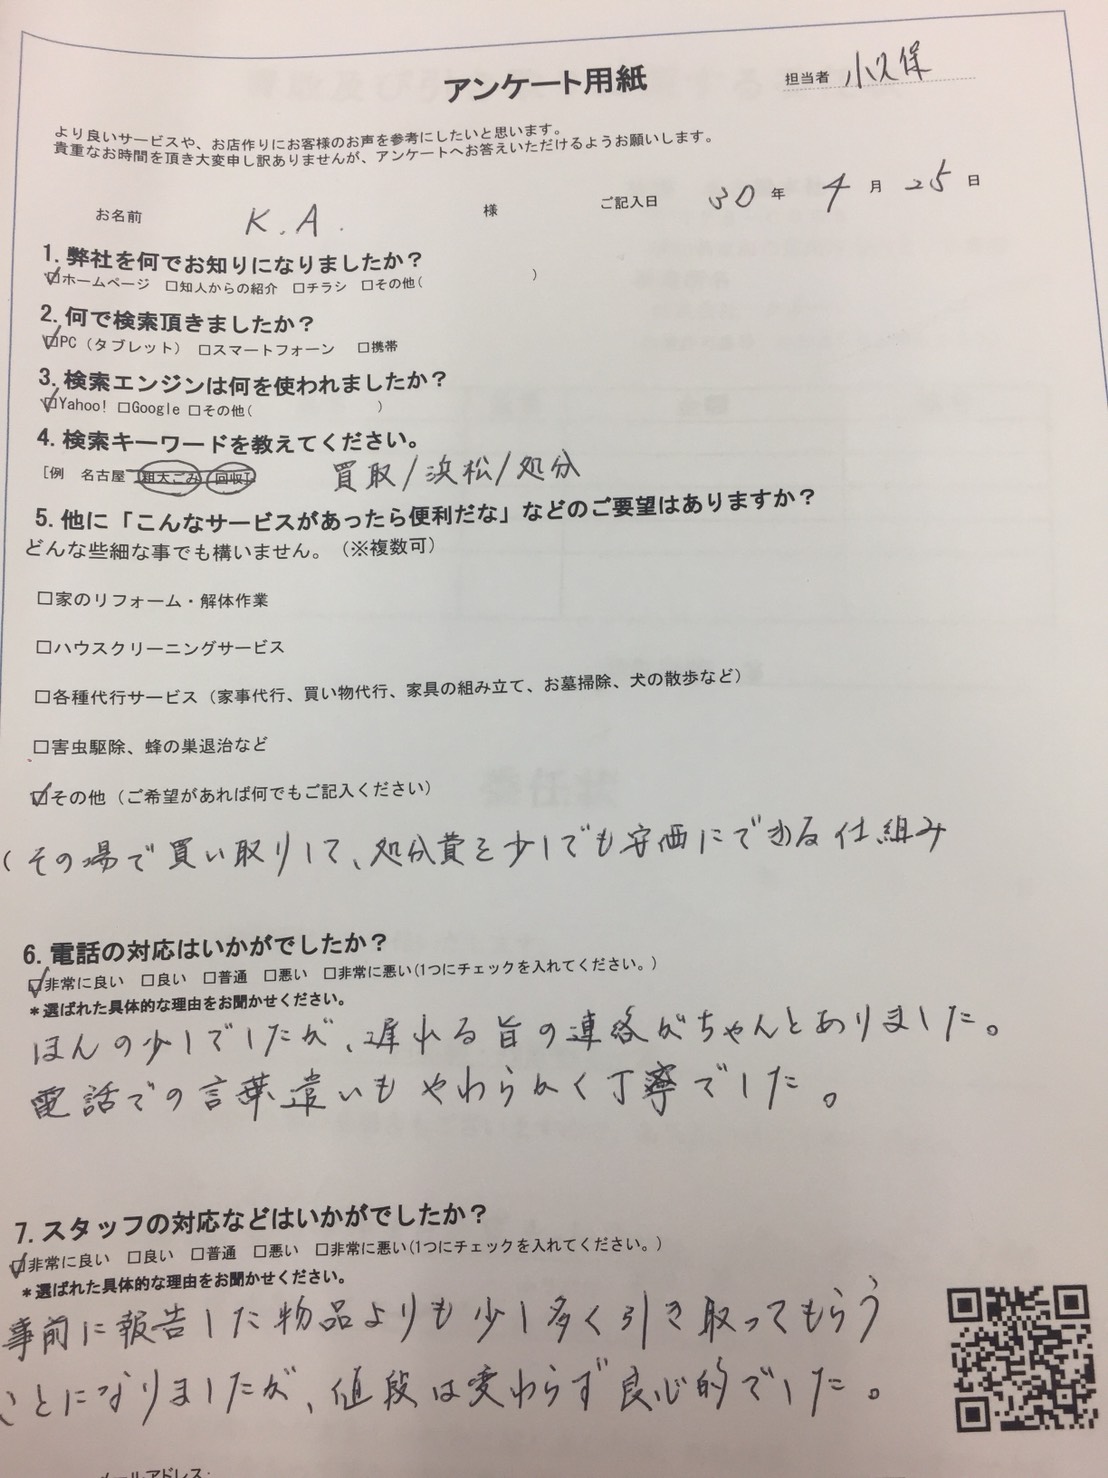 アンケート用紙
担当者 小久保
より良いサービスや、お店作りにお客様のお声を参考にしたいと思います。
貴重なお時間を頂き大変申し訳ありませんが、アンケートへお答えいただけるようお願いします。
お名前 K.A. 様 ご記入日 30年 4月 25日
1. 弊社を何でお知りになりましたか？
☑ホームページ □知人からの紹介 □チラシ □その他( )
2. 何で検索頂きましたか？
☑PC（タブレット） □スマートフォーン □携帯
3. 検索エンジンは何を使われましたか？
☑Yahoo! □Google □その他( )
4. 検索キーワードを教えてください。
[例 名古屋 粗大ごみ 回収] 買取/浜松/処分
5. 他に「こんなサービスがあったら便利だな」などのご要望はありますか？
どんな些細な事でも構いません。（※複数可）
□家のリフォーム・解体作業
□ハウスクリーニングサービス
□各種代行サービス（家事代行、買い物代行、家具の組み立て、お墓掃除、犬の散歩など）
□害虫駆除、蜂の巣退治など
☑その他（ご希望があれば何でもご記入ください）
(その場で買い取りして、処分費を少しでも安価にできる仕組み
6. 電話の対応はいかがでしたか？
☑非常に良い □良い □普通 □悪い □非常に悪い(1つにチェックを入れてください。)
＊選ばれた具体的な理由をお聞かせください。
ほんの少しでしたが、遅れる旨の連絡がちゃんとありました。
電話での言葉遣いもやわらかく丁寧でした。
7. スタッフの対応などはいかがでしたか？
☑非常に良い □良い □普通 □悪い □非常に悪い(1つにチェックを入れてください。)
＊選ばれた具体的な理由をお聞かせください。
事前に報告した物品よりも少し多く引き取ってもらう
ことになりましたが、値段は変わらず良心的でした。
メールアドレス: